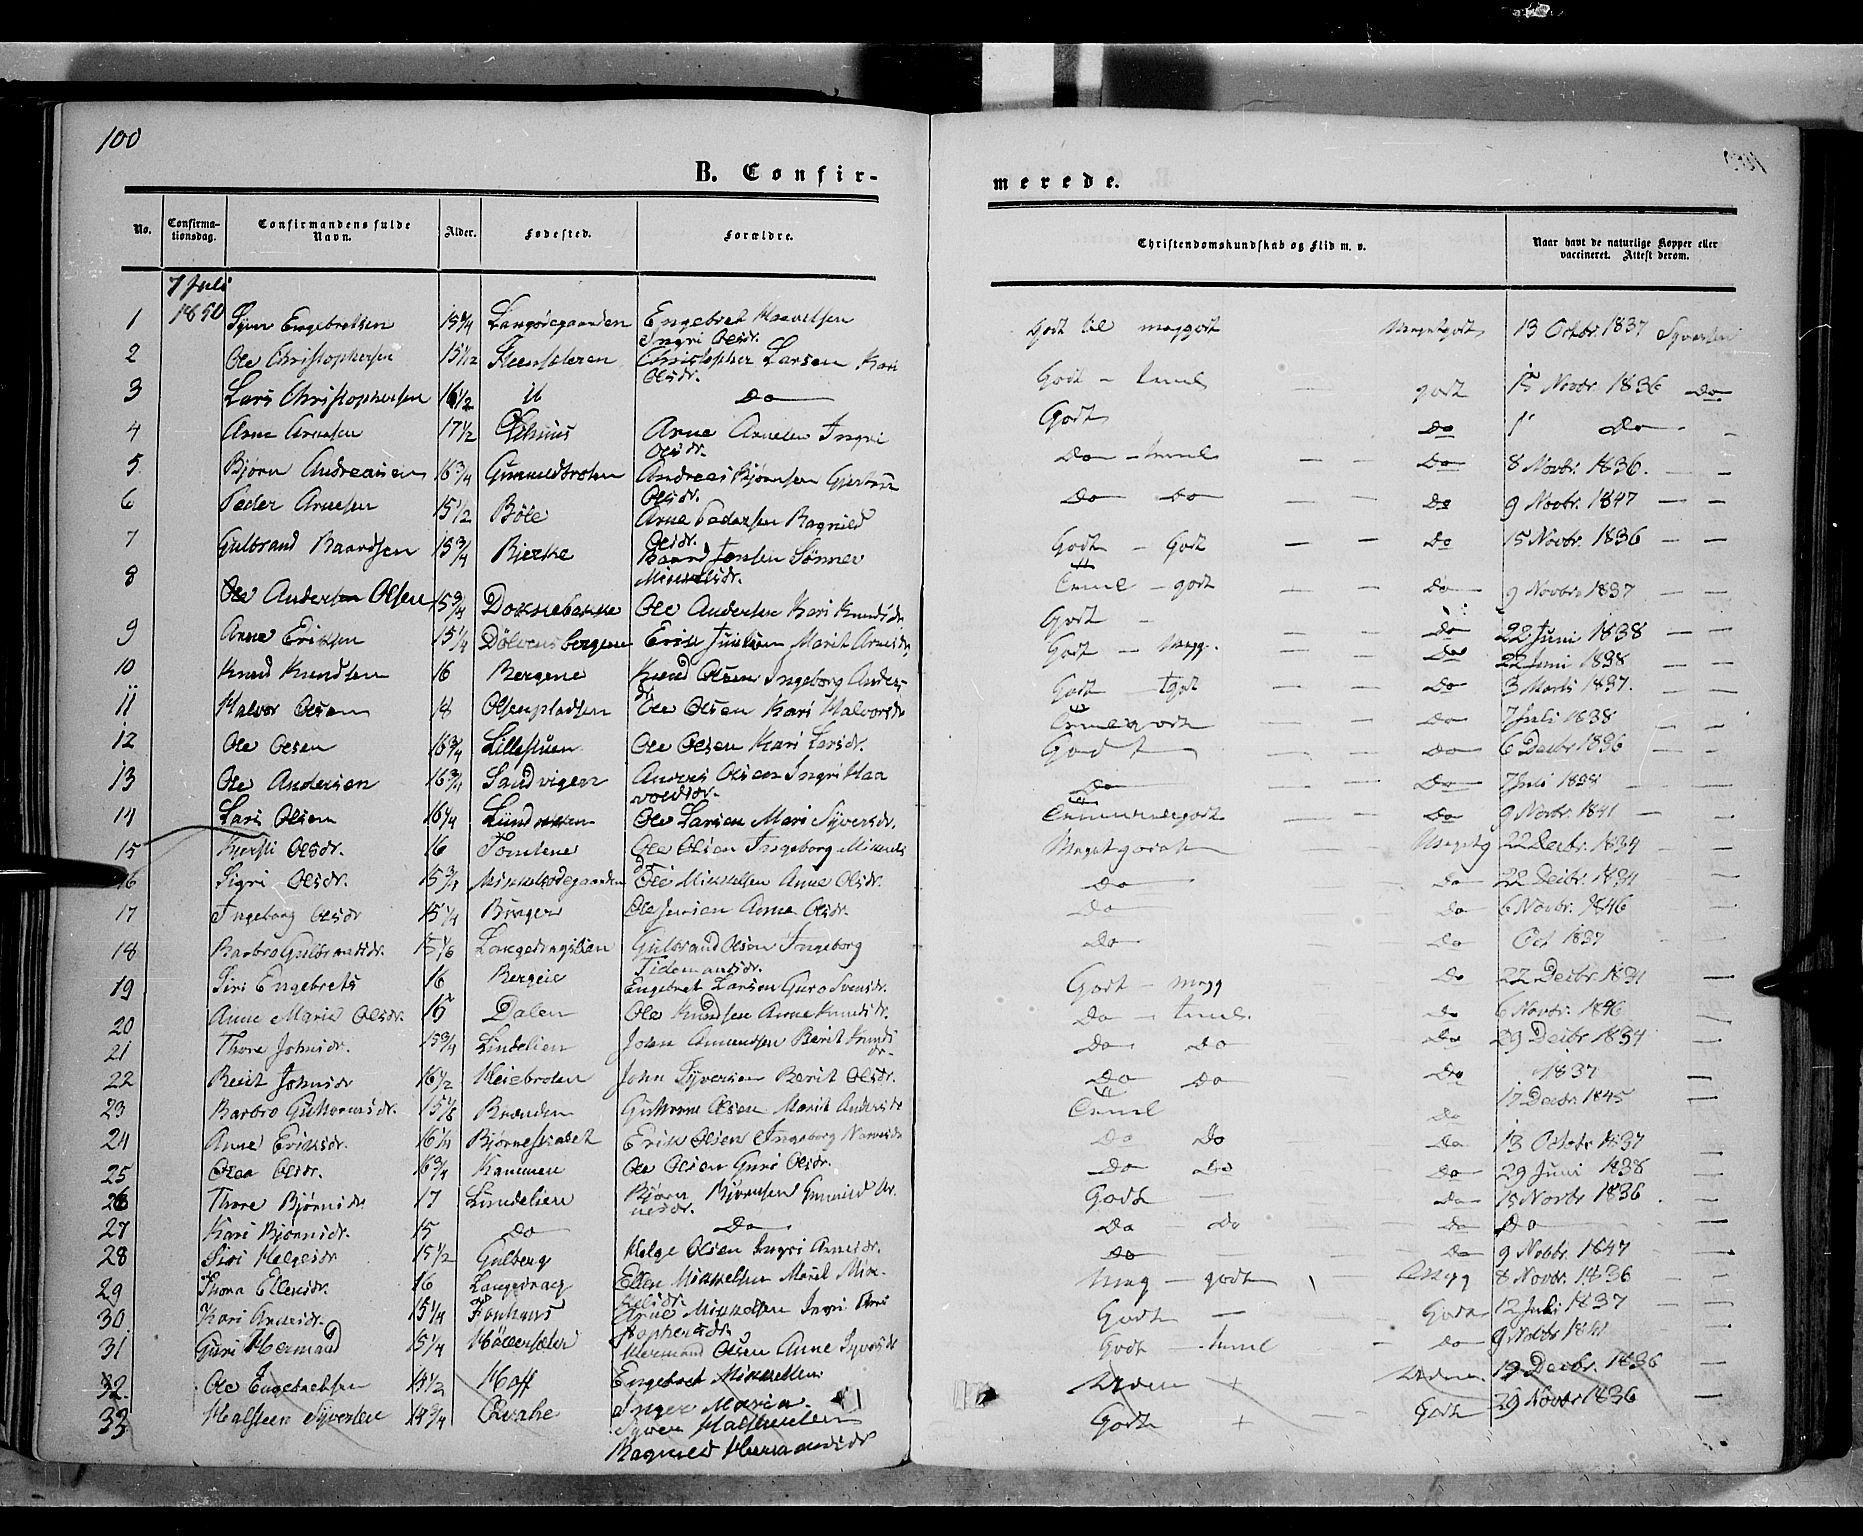 100
B. Confir-
merede.
No. Confirma-tionsdag. Confirmandens fulde Navn. Alder. Fødested. Forældre. Christendomskundskab og Flid m. v. Naar havt de naturlige Kopper eller vaccineret. Attest derom.
7 Juli
1850
1 Syver Engebretsen 15 3/4 Engebret Haavelsen Ingri Olsdr. Godt til maggodt Megetgodt 13 Octbr. 1837
2 Ole Christophersen 15 1/12 Christopher Larsen Kari Olsdr. Godt – temel – godt 15 Novbr. 1836 Do
3 Lars Christophersen 16 1/2 Do Godt Do 1 Do
4 Arne Arnesen 17 1/2 Arne Arnesen Ingri Olsdr. Do – temel – – Do 8 Novbr. 1836. – –
5 Bjørn Andreasen 16 3/4 Gunnildbroten Andreas Bjørnsen Olsdr. Do Do – – Do 9 Novbr. 1847 – –
6 Peder Arnesen 15 1/2 Böle Arne Pedersen Ragnild Olsdr. Godt – Godt – – Do 15 Novbr. 1836 – –
7 Gulbrand Baardsen 15 3/4 Bjerke Baard Jonsen Sönnev Mikkelsdr. Temel – godt Do 9 Novbr. 1837 – –
8 Ole Andersen Olsen 15 3/4 Doknebakke Ole Andersen Kari Knudsdr. Godt – – – Do 22 Juni 1838 – –
9 Arne Eriksen 15 1/4 Erik Marit Arnesdr. Godt – Megg. – – Do 22 Juni 1838 – –
10 Knud Knudsen 16 Bergene Knud Olsen Ingeborg Andersdr. Godt – tgodt – – Do 3 Marts 1837. – –
11 Halvor Olsen 18 Olsenpladsen Ole Olsen Kari Halvorsdr. Do 7 Juli 1838
12 Ole Olsen 16 3/4 Lillestuen Ole Olsen Kari Larsdr. Godt Do 6 Decbr 1836
13 Ole Andersen 16 3/4 Sandvigen Anders Olsen Ingri Haavoldsdr. Do Do 7 Juli 1838
14 Lars Olsen 16 1/4 Ole Larsen Mari Syversdr. Do 9 Novbr. 1841
15 Kjersti Olsdr. 16 Tomlene Ole Olsen Ingeborg Mikkelsdr Meget godt 22 Decbr. 1834
16 Sigri Olsdr. 15 3/4 Mikkelsødegaarden Ole Mikkelsen Anne Olsdr. Do Do 22 Decbr. 1834
17 Ingeborg Olsdr 15 1/4 Ole Jensen Anne Olsdr. Do Do 6 Novbr. 1846
18 Barbro Gulbrandsdr. Langedragslien Gulbrand Olsen Ingeborg Tidemandsdr. Do Do Oct 1837
19 Siri Engebrets 16 Engebret Larsen Guro Svensdr. Godt – megg Do 22 Decbr. 1831
20 Anne Marie Olsdr. 15 Dalen Ole Knudsen Anne Knudsdr. Do – temel. Do 6 Novbr. 1846
21 Thore Johnsdr. 15 3/4 Lindelien John Amundsen Berit Knudsdr. Do Do Do 29 Decbr 1834
22 Berit Johnsdr 16 1/2 Heiebroten John Syversen Berit Olsdr. Do Do Do 1837
23 Barbro Guttormsdr. Brænden Guttorm Olsen Marit Andersdr Temel Do 17 Decbr 1845
24 Anne Eriksdr. 16 1/4 Erik Olsen Ingeborg Do Do Do 13 Octobr 1837
25 Olea Olsdr. 16 3/4 Ole Olsen Guri Olsdr. Do Do Do 29 Juni 1838
26 Thore Bjørnsdr 17 Lindelien Bjørn Bjørnsen Gunnild Arnesdr. Godt Do 15 Novbr 1836
27 Kari Bjørnsdr. 15 Do Do Do Do Do Do
28 Siri Helgesdr 15 1/2 Gulberg Helge Olsen Ingri Arnesdr. Do Do 9 Novbr. 1847
29 Thora Ellensdr. 16 Langedrag Ellen Mikkelsen Marit Mikkelsdr. Meg – godt 8 Novbr. 1836
30 Kari Arnesdr. 15 1/4 Arne Mikkelsen Ingri Christophersdr. Godt – Godt 12 Juli 1837
31 Guri Hermand 15 1/4 Hermand Olsen Anne Syversdr Godt – temel – Do 9 Novbr 1841
32. Ole Engebretsen 14 1/2 Hoff Engebret Mikkelsen Inger Maria + 19 Decbr. 1836
33 Halsteen Syversen 14 3/4 Qvale Syver Halsteensen Ragnild Hermandsdr Godt + Godt 29 Novbr 1836